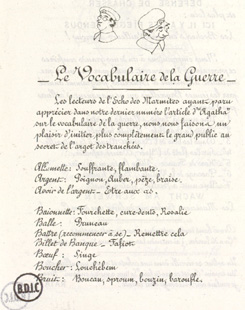 Le Vocabulaire de la Guerre
Les lecteurs de l'Echo des Marmites ayant paru
apprécier dans notre dernier numéro l'article d'"Agatha"
sur le vocabulaire de la guerre, nous nous faisons un
plaisir d'initier plus complètement le grand public au
secret de l'argot des tranchées.
Allumelle: Souffrante, flambante.
Argent: Pognon, Auber, pèze, braise.
Avoir de l'argent _ Etre aux as.
Baïonnette: Fourchette, cure-dents, Rosalie
Balle: Pruneau
Battre (recommencer à se) _ Remettre cela
Billet de Banque _ Fafiot.
Bœuf: Singe
Boucher: Louchébem
Bruit: Boucan, sproum, bouzin, baroufle.
B.D.I.C